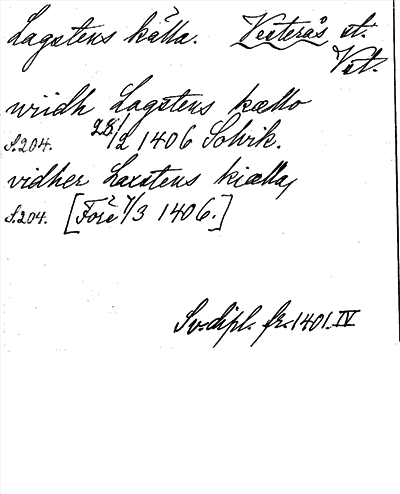 Lagstens källa. Vesterås st.
Vst.
wiidh Lagstens kællo
S.204. 28/2 1406 Solvik.
vidher Laxstens kiælla,
S.204. [Före 7/3 1406.]
Sv.dipl. fr. 1401. IV